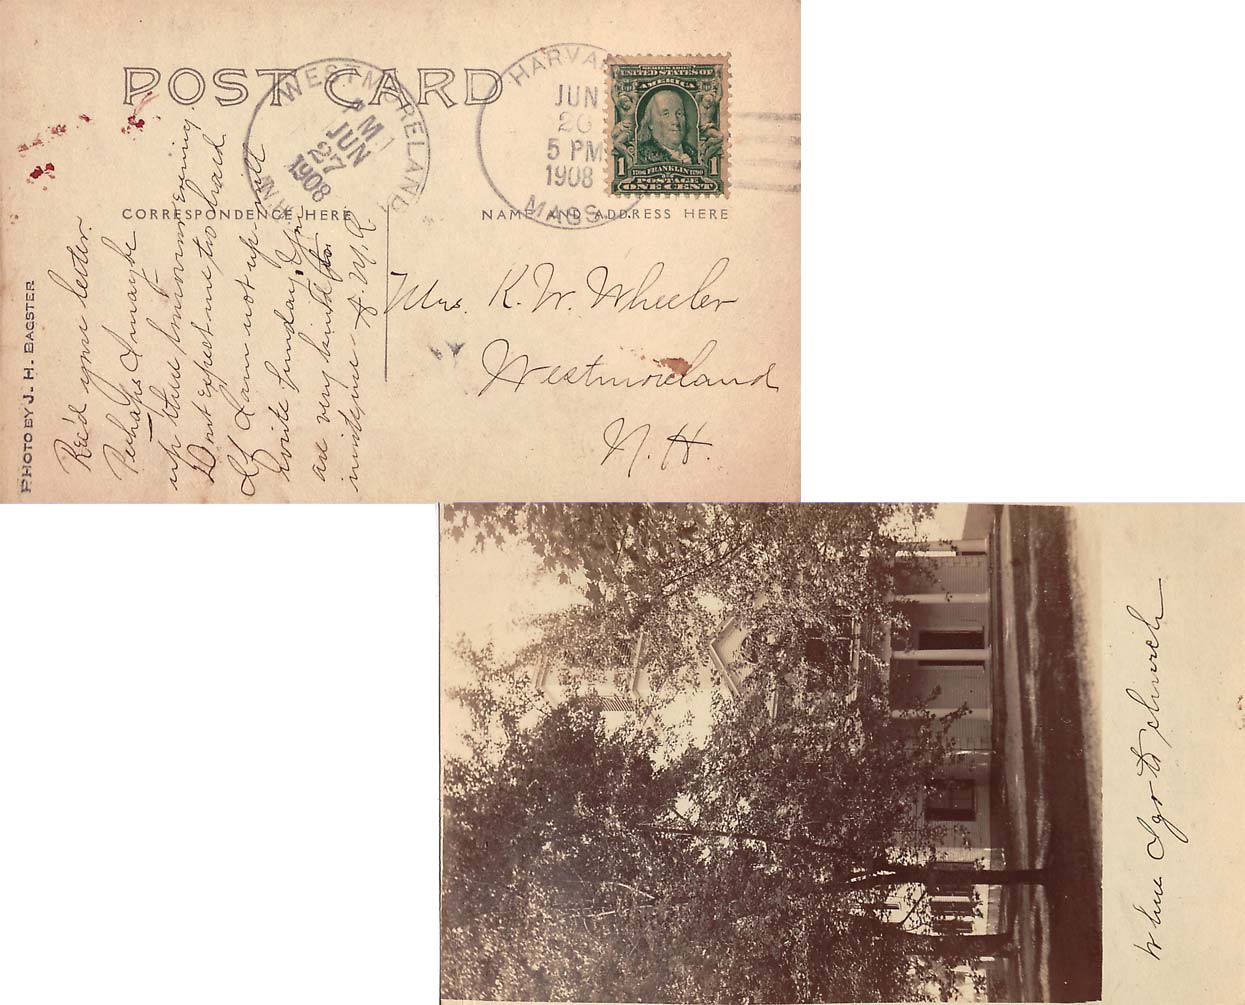 POST CARD
WESTMORELAND
JUN
27
PM
1908
N.H.
HARVA
JUN
26
5 PM
1908
MASS
SERIES 1902
UNITED STATES OF
AMERICA
1 FRANKLIN 1
1706 1790
POSTAGE
ONE CENT
CORRESPONDENCE HERE
NAME AND ADDRESS HERE
PHOTO BY J. H. BAGSTER
Rec'd your letter.
Perhaps I may be
up there tomorrow evening.
Dont expect me too hard
If I am not up will
write Sunday. You
are very kind to
invite me. A. M. R.
Mrs. K. W. Wheeler
Westmoreland
N. H.
Where I go to church